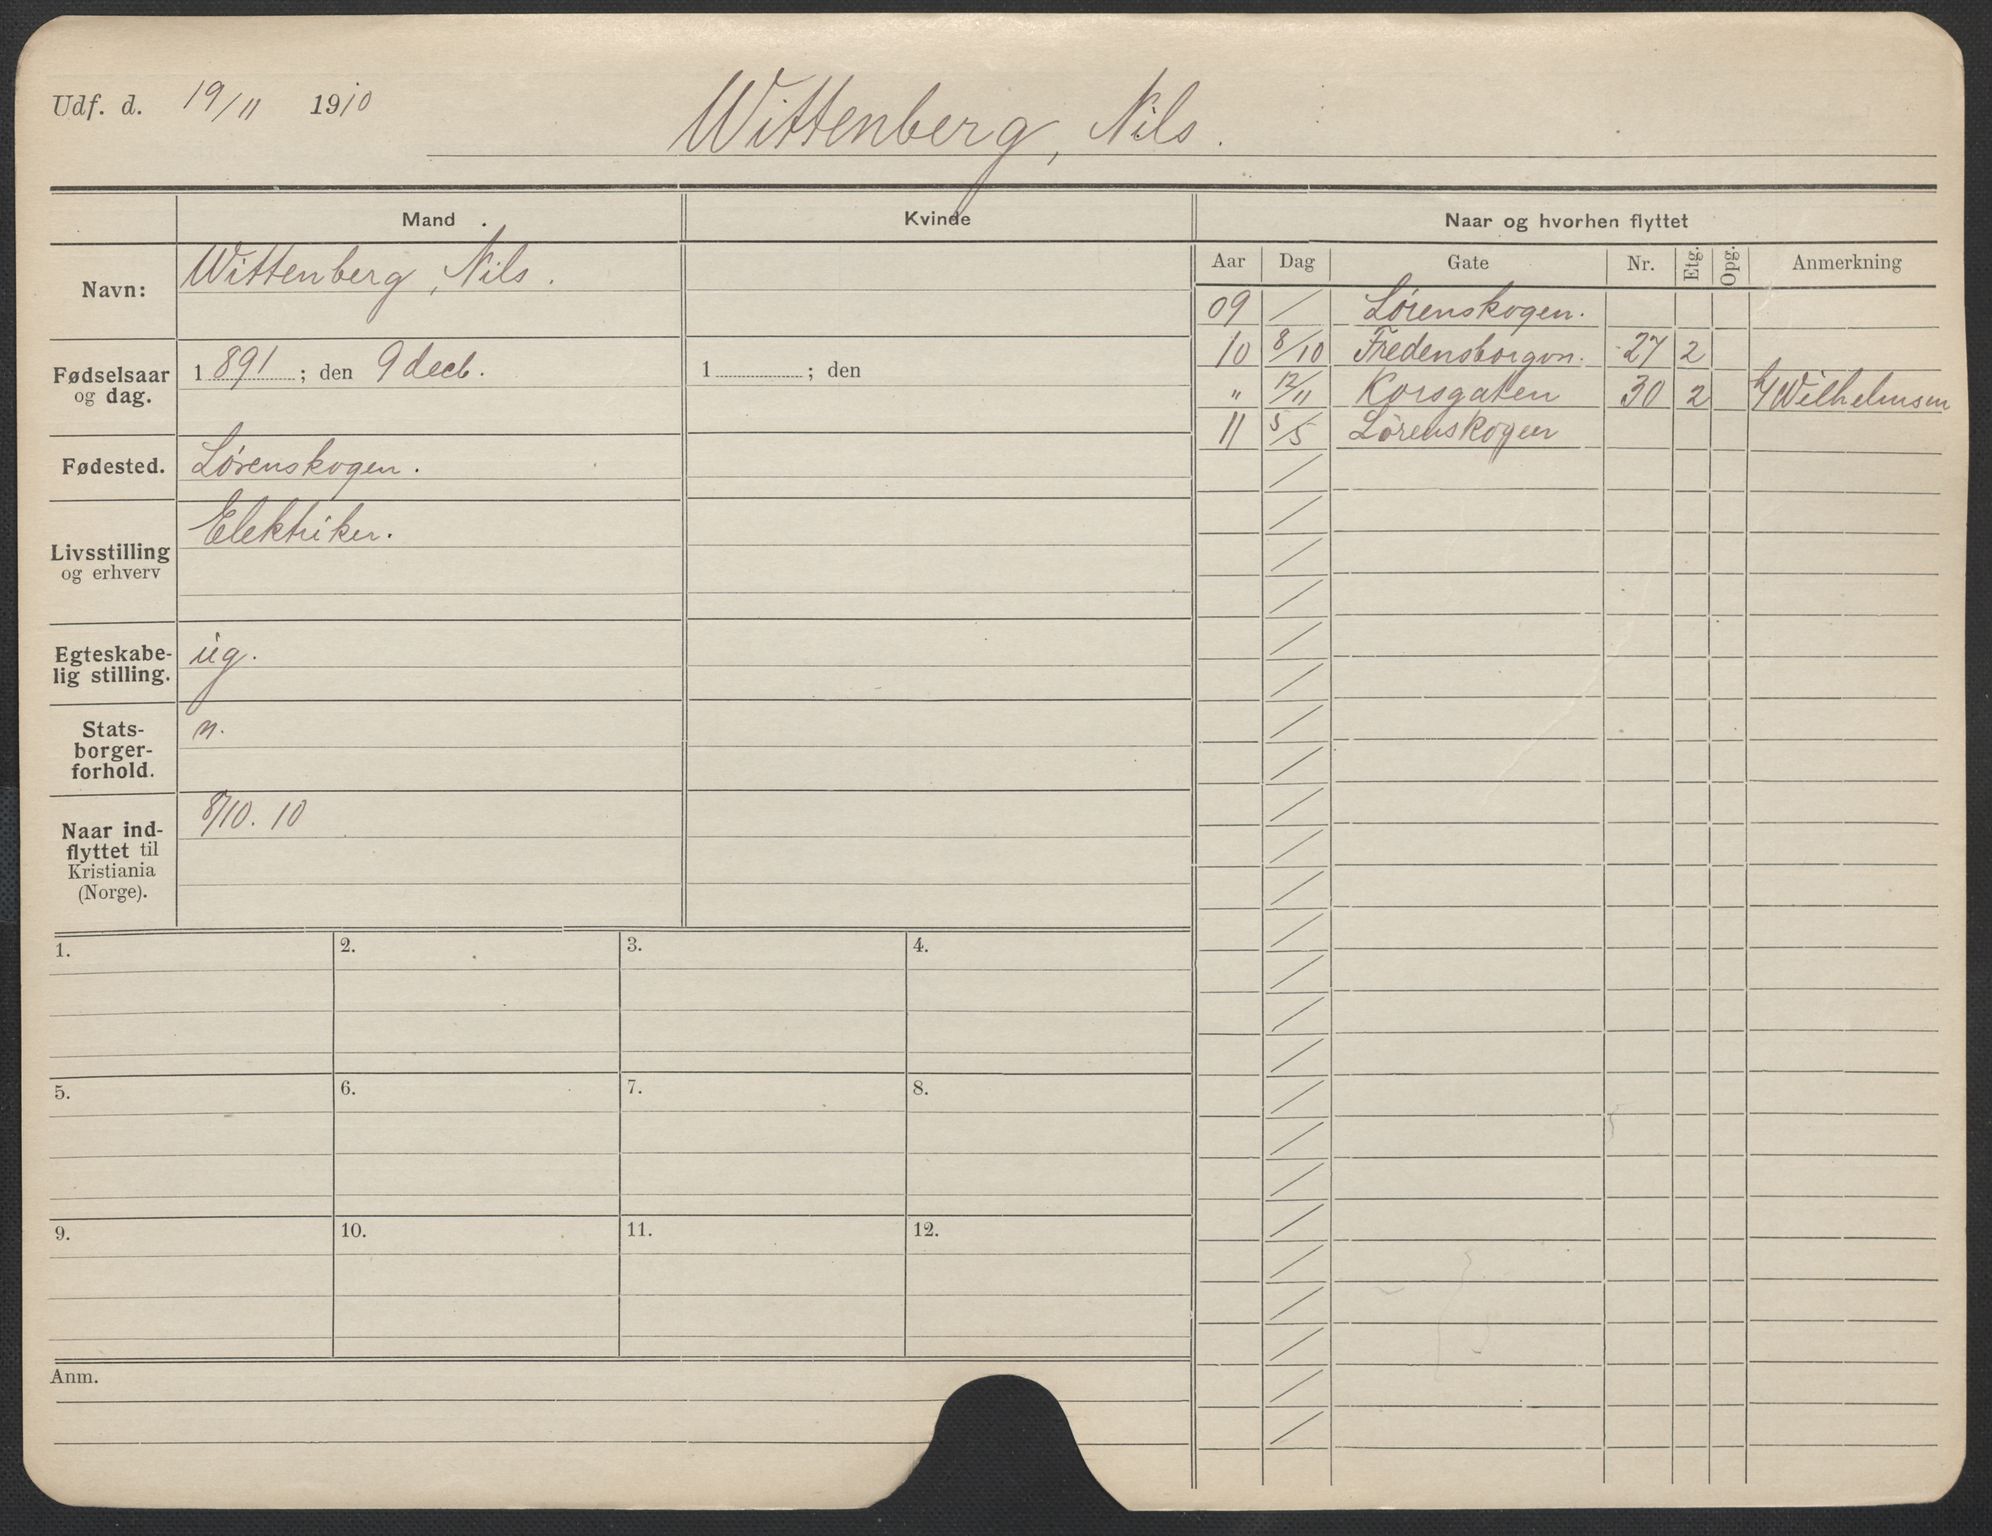 Udf. d. 19/11 1910
Wittenberg, Nils.
Mand
Kvinde
Naar og hvorhen flyttet
Navn:
Wittenberg, Nils.
Fødselsaar
og dag.
1 891 ; den 9 decb.
1 ; den
Fødested.
Lørenskogen.
Livsstilling
og erhverv
Elektriker.
Egteskabe-
lig stilling.
ug.
Stats-
borger-
forhold.
n.
Naar ind-
flyttet til
Kristiania
(Norge).
8/10. 10
Aar Dag Gate Nr. Etg. Opg. Anmerkning
09 / Lørenskogen.
10 8/10 Fredensborgvn. 27 2
" 12/11 Korsgaten 30 2 b/ Wilhelmsen
11 5/5 Lørenskogen
1. 2. 3. 4.
5. 6. 7. 8.
9. 10. 11. 12.
Anm.